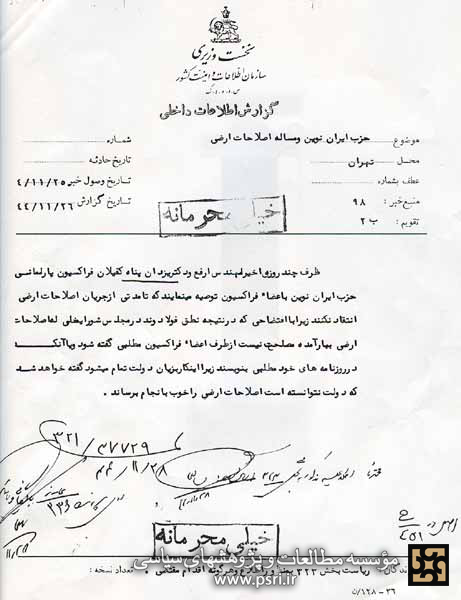 نخست وزیری
سازمان اطلاعات و امنیت کشور
س.ا.و.ا.ک
گزارش اطلاعات داخلی
موضوع : حزب ایران نوین ومساله اصلاحات ارضی
شماره
محل : تهران
تاریخ حادثه
عطف بشماره
تاریخ وصول خبر ۴/۱۱/۲۵
منبع خبر : ۹۸
تاریخ گزارش ۴۴/۱۱/۲۶
تقویم : ب ۲
خیلی محرمانه
ظرف چند روزه اخیر مهندس ارفع ودکتریزدان پناه کفیلان فراکسیون پارلمانی
حزب ایران نوین باعضاء فراکسیون توصیه مینمایند که تامدتی ازجریان اصلاحات ارضی
انتقاد نکنند زیرا با افتضاحی که درنتیجه نطق فولادوند درمجلس شورایملی له اصلاحات
ارضی ببارآمده مصلحت نیست ازطرف اعضاء فراکسیون مطلبی گفته شود ویا آنکه
در روزنامه های خود مطلبی بنویسند زیرا اینکار بزیان دولت تمام میشود گفته خواهد شد
که دولت نتوانسته است اصلاحات ارضی را خوب بانجام برساند .
۳۲۱/۳۷۷۲۹
۴۴/۱۱/۲۸
خیلی محرمانه
مؤسسه مطالعات و پژوهشهای سیاسی
www.psri.ir
ریاست بخش ۳۲۲
و هرگونه اقدام مقتضی .
تعداد نسخه :
۳۶-۱۲۸/ن